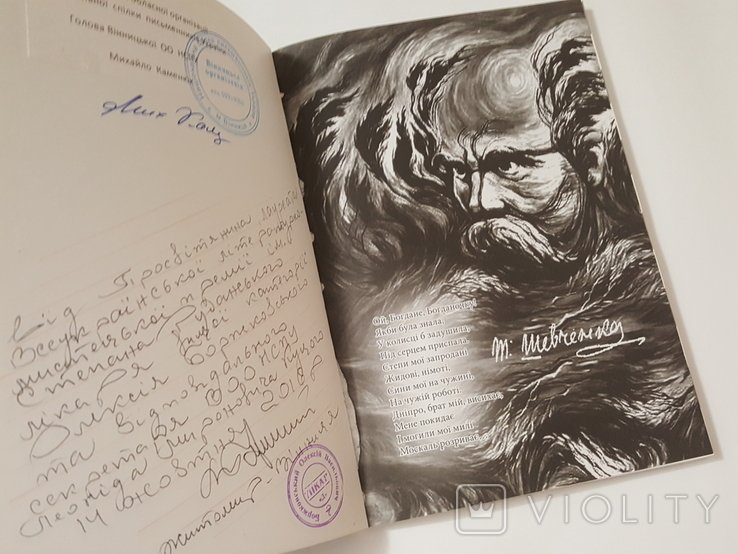 обласної організації
спілки письменників України
Голова Вінницької ОО НСПУ
Михайло Каменюк
Вінницька
організація
від Просвітянина, лауреата
Всеукраїнської літературно-
мистецької премії ім.
Степана Руданського
лікаря вищої категорії
Олексія Боржковського
та відповідального
секретаря
Леоніда Мироновича
14 жовтня 2018 р
Житомир - Вінниця
Боржковський Олексій
ЛІКАР
Ой, Богдане, Богданочку!
Якби була знала,
У колисці б задушила,
Під серцем приспала.
Степи мої запродані
Жидові, німоті,
Сини мої на чужині,
На чужій роботі.
Дніпро, брат мій, висихає,
Мене покидає,
І могили мої милі
Москаль розриває...
Т. Шевченко
VIOLITY